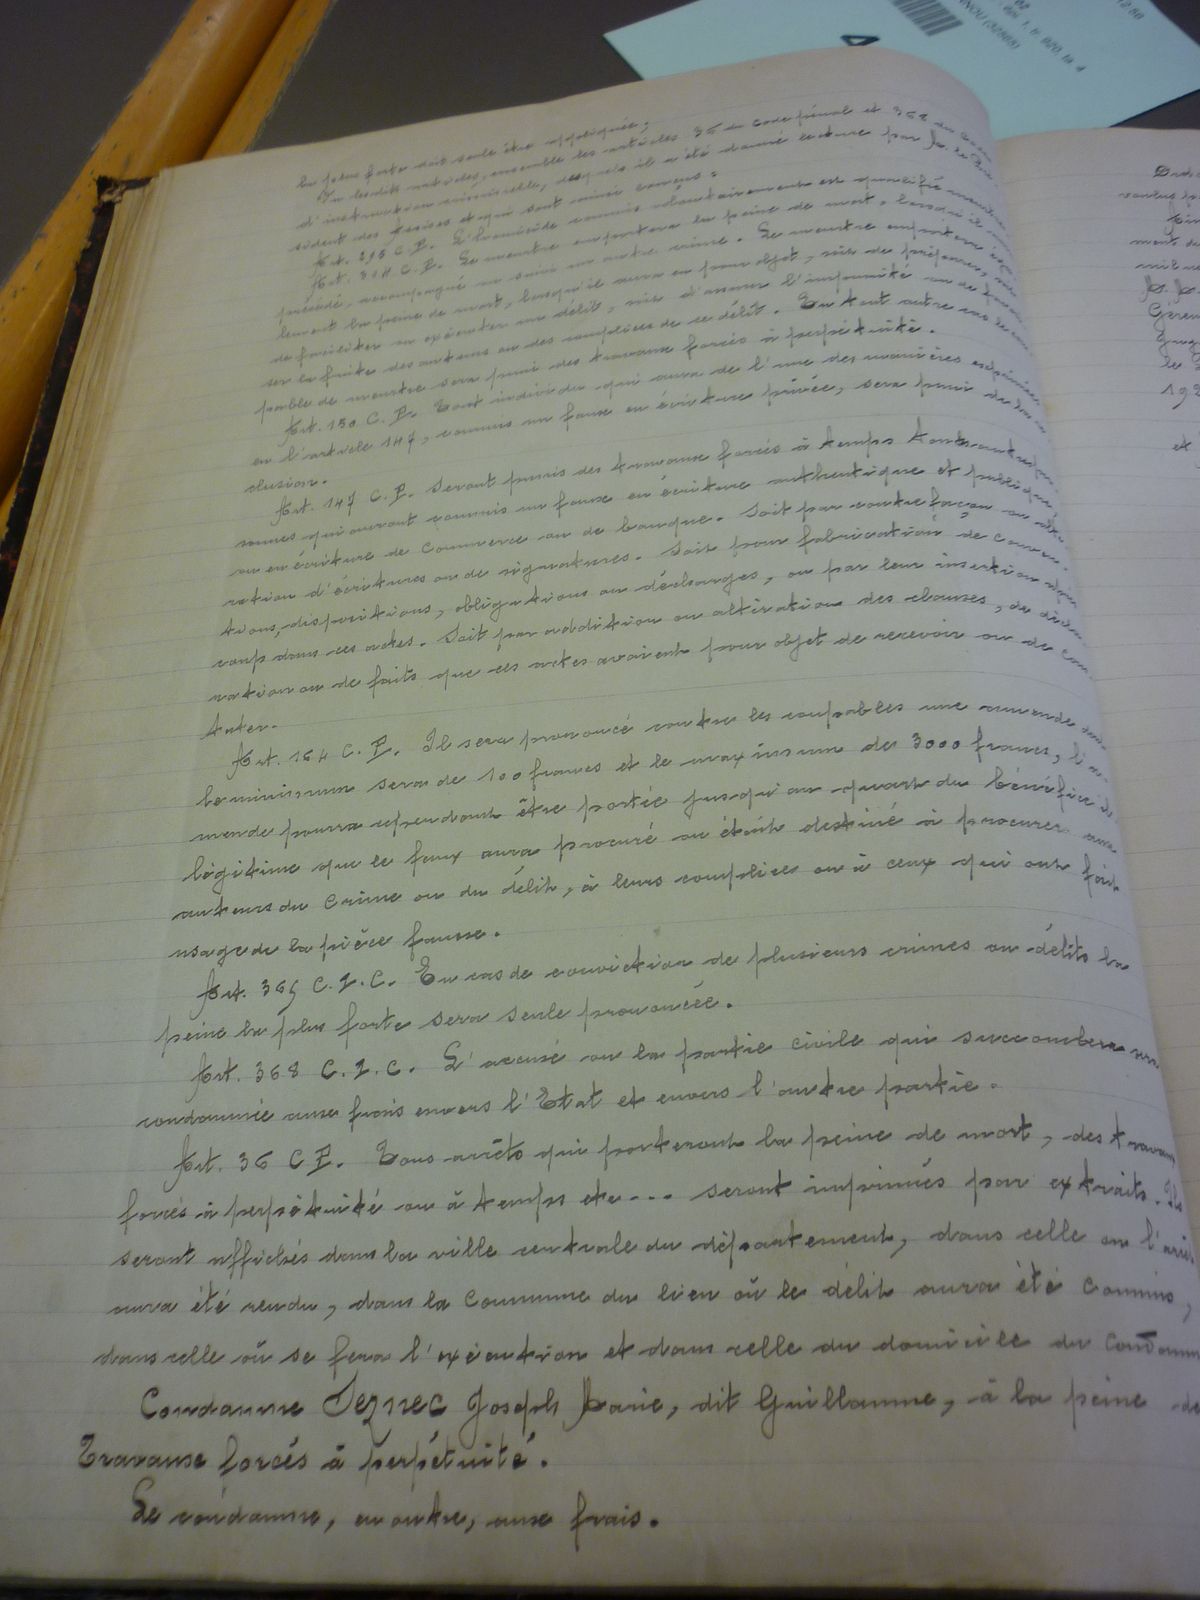 la peine forte doit seule être appliquée;
Vu lesdits articles, ensemble les articles 36 du code pénal et 368 du Code
d'instruction criminelle, desquels il a été donné lecture par M. le Pré-
sident des Assises et qui sont ainsi conçus:
Art. 295 C.P. L'homicide commis volontairement est qualifié meurtre
Art. 304 C.P. Le meurtre emportera la peine de mort, lorsqu'il aura
précédé, accompagné ou suivi un autre crime. Le meurtre emportera éga-
lement la peine de mort, lorsqu'il aura eu pour objet, soit de préparer,
de faciliter ou exécuter un délit, soit d'assurer l'impunité ou de favori-
ser la fuite des auteurs ou des complices de ce délit. En tout autre cas le cou-
pable de meurtre sera puni des travaux forcés à perpétuité.
Art. 150 C.P. Tout individu qui aura de l'une des manières exprimées
en l'article 147, commis un faux en écriture privée, sera puni de la ré-
clusion.
Art. 147 C.P. Seront punis des travaux forcés à temps toutes autres per-
sonnes qui auront commis un faux en écriture authentique et publique,
ou en écriture de Commerce ou de banque. Soit par contrefaçon ou alté-
ration d'écritures ou de signatures. Soit pour fabrication de conven-
tions, dispositions, obligations ou décharges, ou par leur insertion après
coup dans ces actes. Soit par addition ou altération des clauses, de décla-
ration ou de faits que ces actes avaient pour objet de recevoir ou de cons-
tater.
Art. 164 C.P. Il sera prononcé contre les coupables une amende dont
le minimum sera de 100 francs et le maximum de 3000 francs, l'a-
mende pourra cependant être portée jusqu'au quart du bénéfice il-
légitime que le faux aura procuré ou était destiné à procurer aux
auteurs du Crime ou du délit, à leurs complices ou à ceux qui ont fait
usage de la pièce fausse.
Art. 365 C.I.C. En cas de conviction de plusieurs crimes ou délits la
peine la plus forte sera seule prononcée.
Art. 368 C.I.C. L'accusé ou la partie civile qui succombera sera
condamnée aux frais envers l'Etat et envers l'autre partie.
Art. 36 C P. Tous arrêts qui porteront la peine de mort, des travaux
forcés à perpétuité ou à temps etc... seront imprimés par extraits. Ils
seront affichés dans la ville centrale du département, dans celle ou l'arrêt
aura été rendu, dans la Commune du lieu où le délit aura été Commis,
dans celle où se fera l'exécution et dans celle du domicile du Condamné
Condamne Seznec Joseph Marie, dit Guillaume, à la peine de
Travaux forcés à perpétuité.
Le condamne, en outre, aux frais.